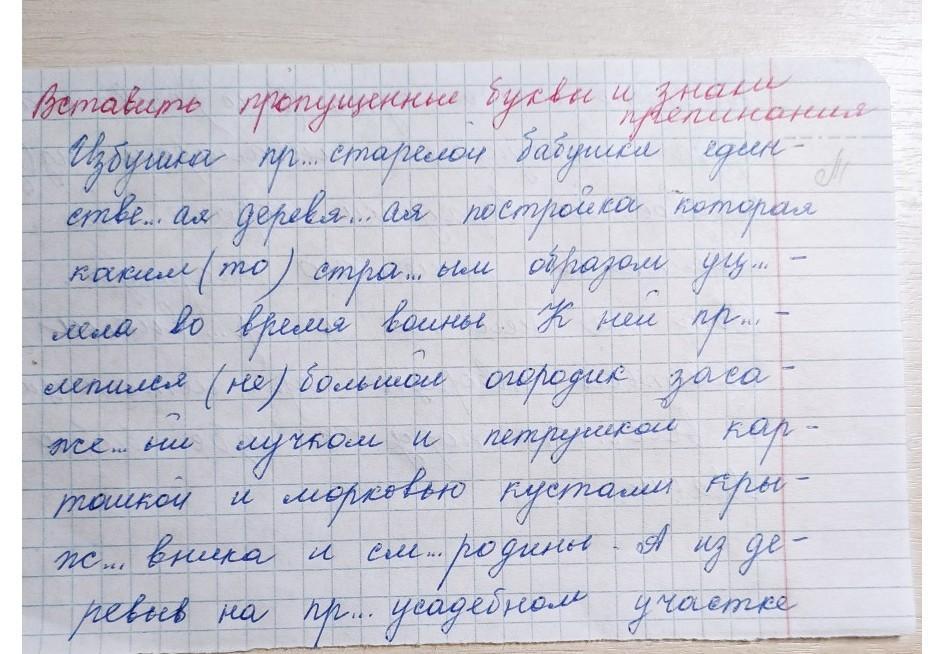 Вставить пропущенные буквы и знаки
препинания
Избушка пр...старелой бабушки един-
стве...ая деревя...ая постройка которая
каким(то) стра...ым образом уц...-
лела во время войны. К ней пр...-
лепился (не)большой огородик заса-
же...ый лучком и петрушкой кар-
тошкой и морковью кустами кры-
ж...вника и см...родины. А из де-
ревьев на пр...усадебном участке